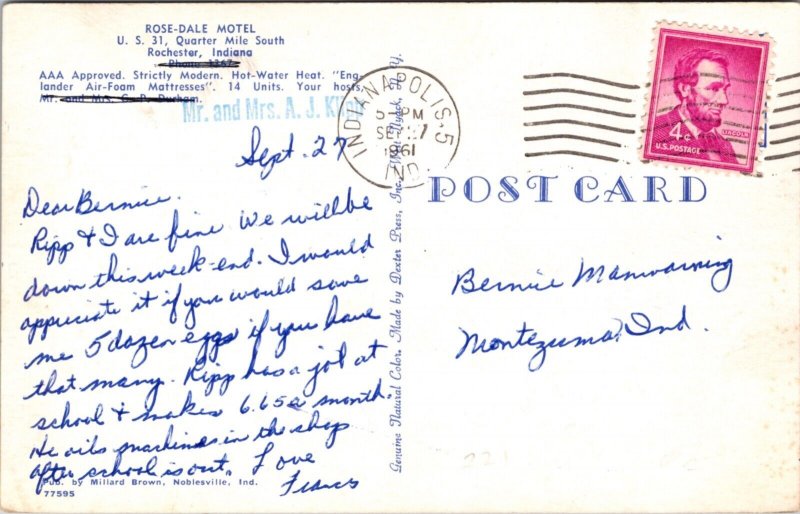 ROSE-DALE MOTEL
U. S. 31, Quarter Mile South
Rochester, Indiana
AAA Approved. Strictly Modern. Hot-Water Heat. "Eng-
lander Air-Foam Mattresses". 14 Units. Your hosts,
Mr. and Mrs. G. P. Durham.
Mr. and Mrs. A. J.
Sept. 27
Dear Bernice.
Ripp & I are fine We will be
down this week-end. I would
appreciate it if you would save
me 5 dozen eggs if you have
that many. Ripp has a job at
school & makes 6.65 a month.
He oils machines in the shop
after school is out. Love
Francs
Pub. by Millard Brown, Noblesville, Ind.
77595
Genuine Natural Color. Made by Dexter Press, Inc., West Nyack, N. Y.
INDIANAPOLIS. 5
5-PM
SEP 27
1961
IND
4¢
LINCOLN
U.S. POSTAGE
POST CARD
Bernice Manwarring
Montezuma, Ind.